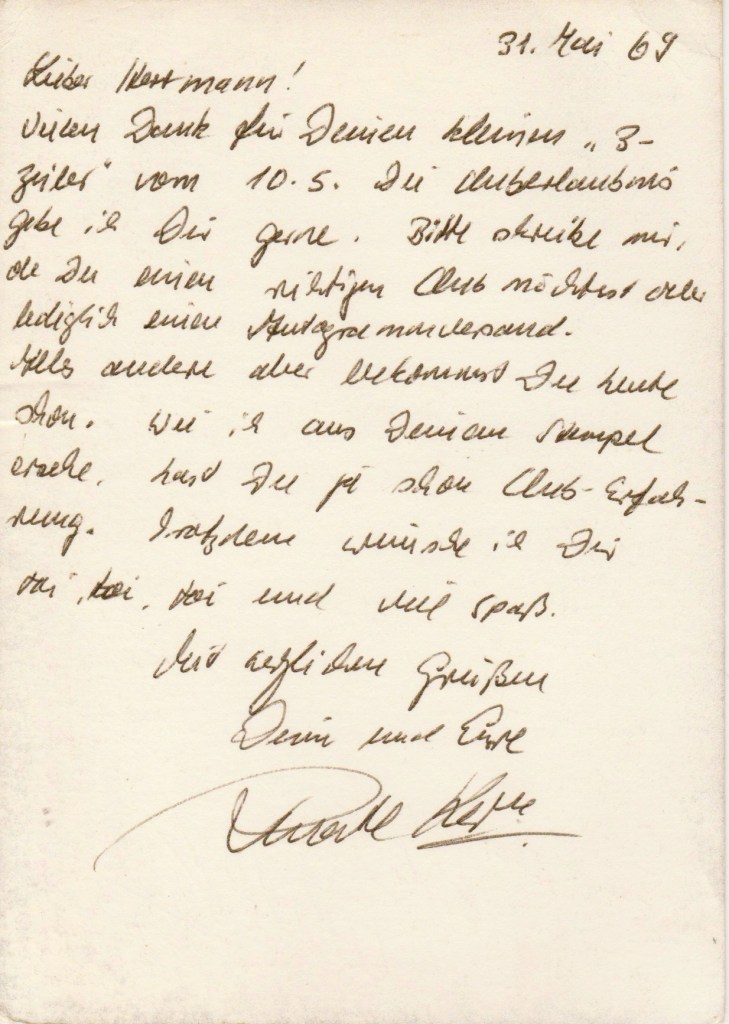 31. Mai 69
Lieber Herrmann!
Vielen Dank für Deinen kleinen „3-
Zeiler" vom 10.5. Die Cluberlaubnis
gebe ich Dir gerne. Bitte schreibe mir,
ob Du einen richtigen Club möchtest oder
lediglich einen Autogrammversand.
Alles andere aber bekommst Du heute
schon. Wie ich aus Deinem Stempel
ersehe, hast Du ja schon Club-Erfah-
rung. Trotzdem wünsche ich Dir
toi, toi, toi und viel Spaß.
Mit herzlichen Grüßen
Dein und Eure